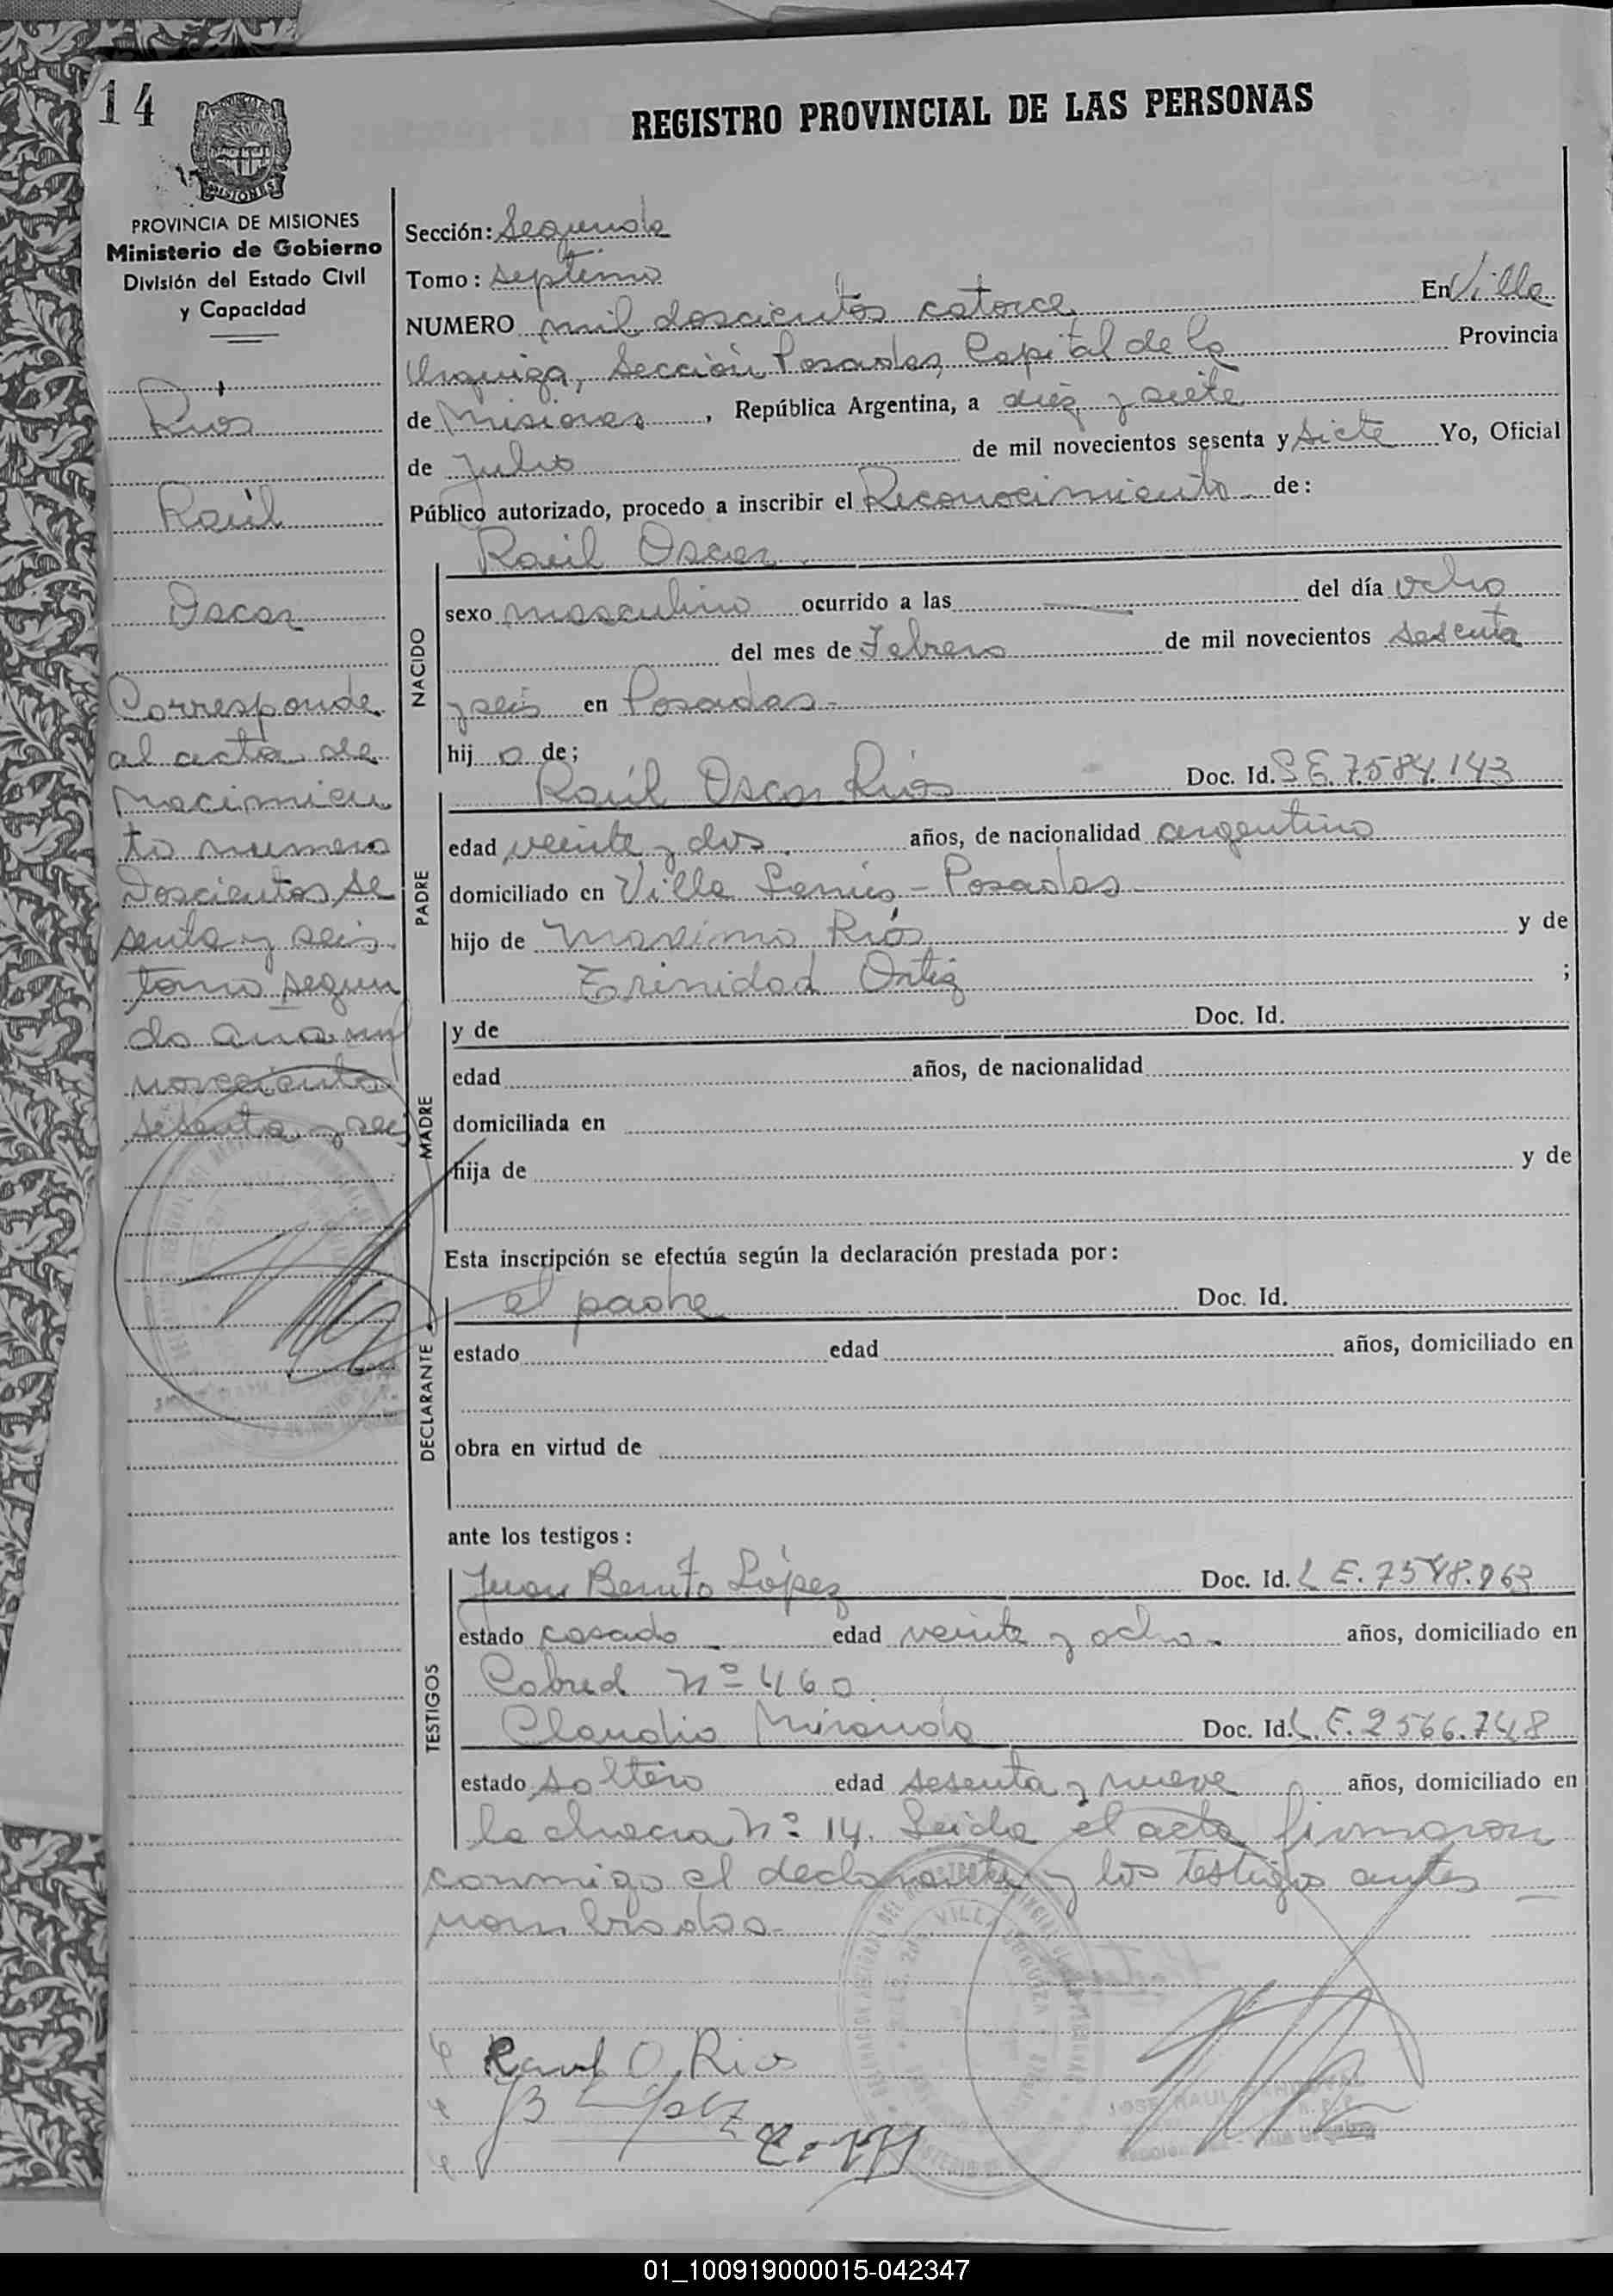 14
REGISTRO PROVINCIAL DE LAS PERSONAS
PROVINCIA DE MISIONES
Ministerio de Gobierno
División del Estado Civil
y Capacidad
Ríos
Raúl
Oscar
Corresponde
al acta de
Nacimien
to numero
Doscientos se
senta y seis
tomo segun
do año mil
novecientos
sesenta y seis
Sección: Segunda
Tomo: septimo
NUMERO mil doscientos catorce En Villa
Urquiza, Sección Posadas, Capital de la Provincia
de Misiones, República Argentina, a diez y siete
de Julio de mil novecientos sesenta y siete Yo, Oficial
Público autorizado, procedo a inscribir el Reconocimiento de:
Raúl Oscar
NACIDO
sexo masculino ocurrido a las — del día ocho
del mes de Febrero de mil novecientos sesenta
y seis en Posadas-
hijo de;
PADRE
Raúl Oscar Ríos Doc. Id. 7584.143
edad veinte y dos años, de nacionalidad argentino
domiciliado en Villa Lanús - Posadas
hijo de Maximo Ríos y de
Trinidad Ortiz ;
MADRE
y de Doc. Id.
edad años, de nacionalidad
domiciliada en
hija de y de
Esta inscripción se efectúa según la declaración prestada por:
DECLARANTE
el padre Doc. Id.
estado edad años, domiciliado en
obra en virtud de
ante los testigos:
TESTIGOS
Juan Benito López Doc. Id. L E. 7548.963
estado casado edad veinte y ocho.- años, domiciliado en
Cabred Nº 460
Claudio Miranda Doc. Id. L.E. 2566.748
estado soltero edad sesenta y nueve años, domiciliado en
la chacra Nº 14. Leida el acta firmaron
conmigo el declarante y los testigos antes
nombrados-
Raul O. Rios
JB López
01_100919000015-042347